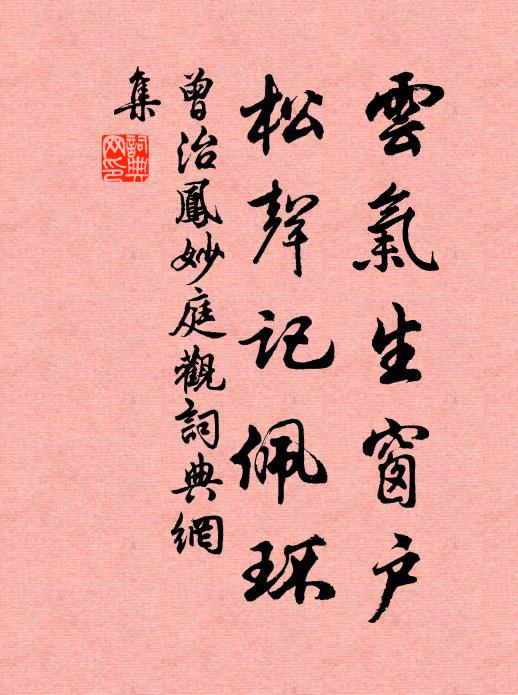 雲氣生窗户
松聲記佩环
曾治鳳妙庭觀詞典網
集
詞典
网印